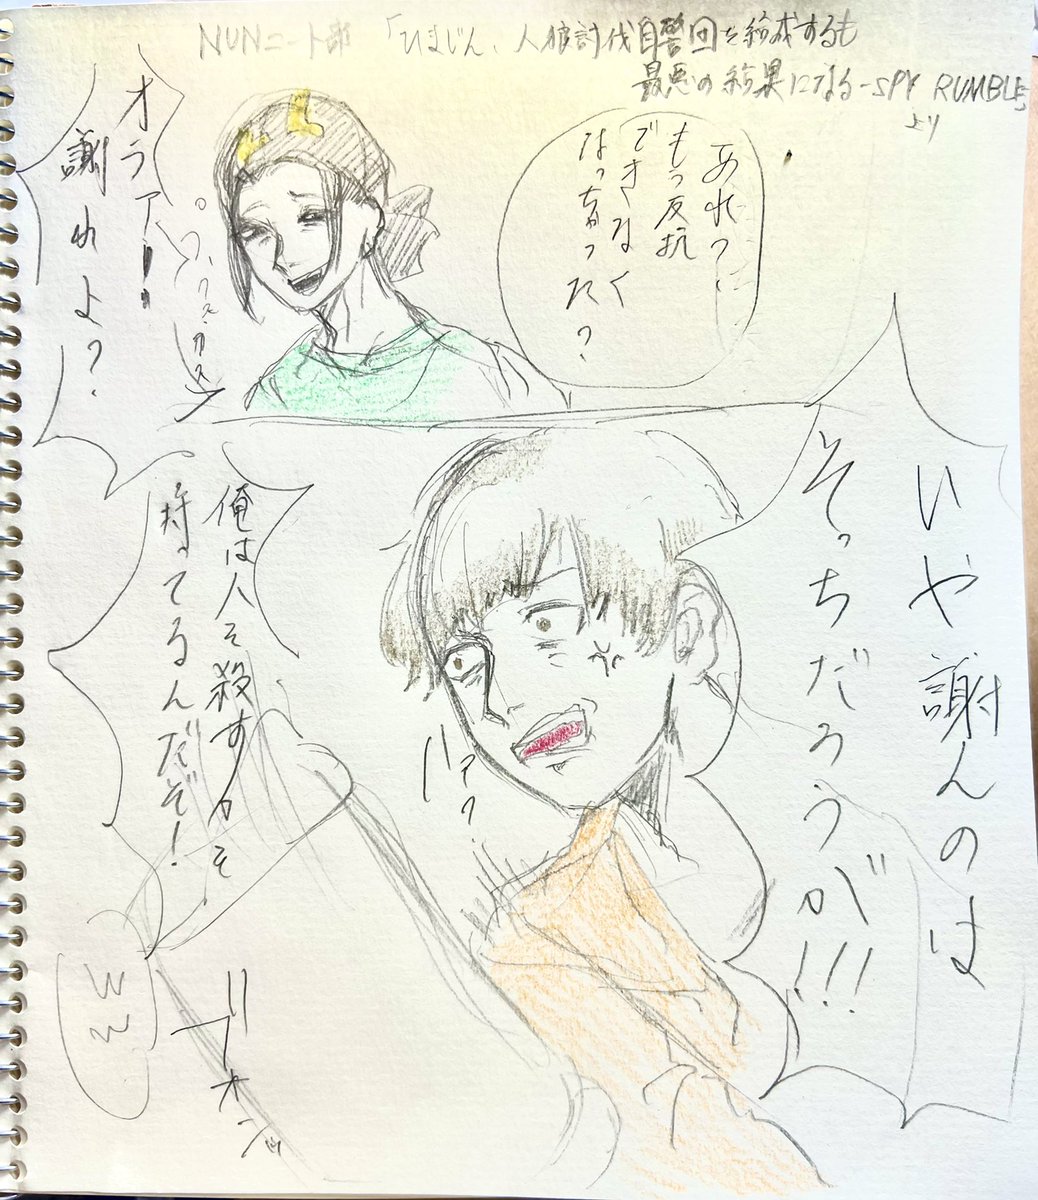 NUNニート部 「ひまじん、人狼討伐自警団を結成するも
最悪の結果になる-SPY RUMBLE」
より
あれっ
もう反抗
できなく
なっちゃった?
オラァ!
謝れよ?
いや謝んのは
そっちだろうが!!!
俺は人を殺すカを
持ってるんだぞ!
ハァ?
ブオンッ
ww